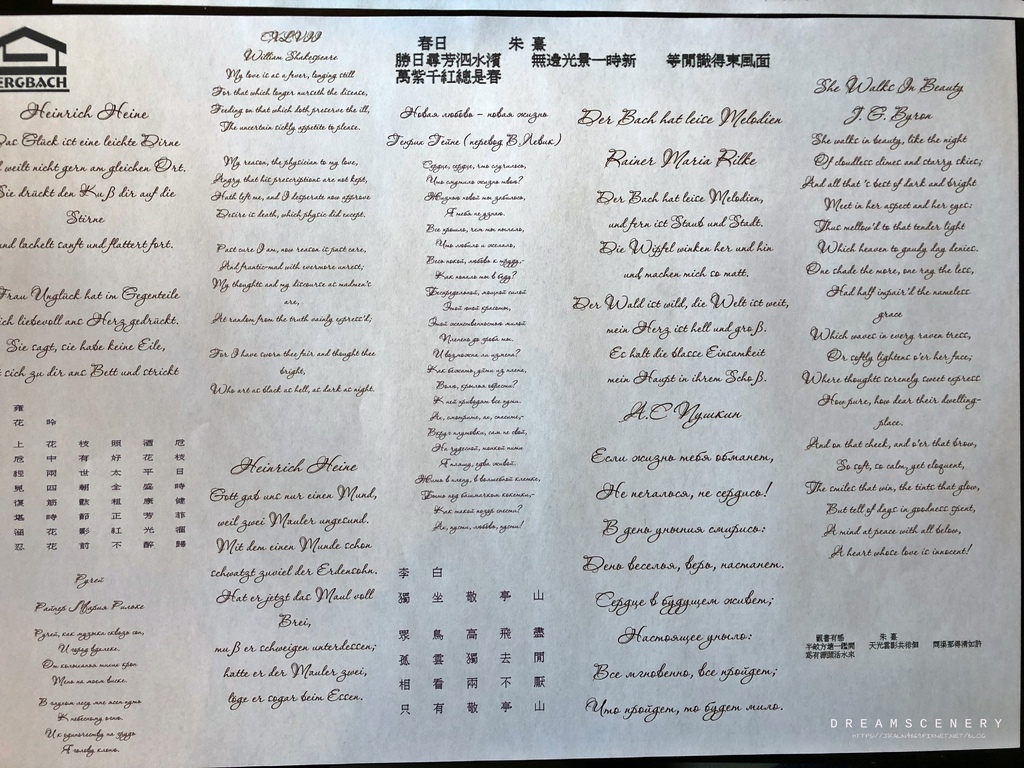 ERGBACH
Heinrich Heine
Das Glück ist eine leichte Dirne
weilt nicht gern am gleichen Ort,
Sie drückt den Kuß dir auf die
Stirne
und lachelt sanft und flattert fort.
Frau Unglück hat im Gegenteile
ich liebevoll ans Herz gedrückt.
Sie sagt, sie habe keine Eile,
sich zu dir ans Bett und strickt
雍
花 吟
上 花 枝 照 酒 卮
卮 中 有 好 花 枝
經 兩 世 太 平 日
見 四 朝 全 盛 時
復 筋 骸 粗 康 健
堪 時 節 正 芳 菲
涵 花 影 紅 光 溜
忍 花 前 不 醉 歸
Ручей
Райнер Мария Рильке
Ручей, как музыка сквозь сон,
И город вдалеке.
CXLVII
William Shakespeare
My love is as a fever, longing still
For that which longer nurseth the disease,
Feeding on that which doth preserve the ill,
The uncertain sickly appetite to please.
My reason, the physician to my love,
Angry that his prescriptions are not kept,
Hath left me, and I desperate now approve
Desire is death, which physic did except.
Past cure I am, now reason is past care,
And frantic-mad with evermore unrest;
My thoughts and my discourse as madmen's
are,
At random from the truth vainly express'd;
For I have sworn thee fair and thought thee
bright,
Who art as black as hell, as dark as night.
Heinrich Heine
Gott gab uns nur einen Mund,
weil zwei Mauler ungesund.
Mit dem einen Munde schon
schwatzt zuviel der Erdensohn.
Hat er jetzt das Maul voll
Brei,
muß er schweigen unterdessen;
hatte er der Mauler zwei,
löge er sogar beim Essen.
春日 朱 熹
勝日尋芳泗水濱 無邊光景一時新 等閒識得東風面
萬紫千紅總是春
Новая любовь – новая жизнь
Генрих Гейне (перевод В.Левик)
Сердце, сердце, что случилось,
Что смутило жизнь твою?
Жизнью новой ты забилось,
Я тебя не узнаю.
Все прошло, чем ты пылало,
Что любило и желало,
Весь покой, любовь к труду;
Как попало ты в беду?
Беспредельной, мощной силой
Этой юной красоты,
Этой женственностью милой
Пленено до гроба ты.
И возможна ли измена?
Как бежать, уйти из плена,
Волю, крылья обрести?
К ней приводят все пути.
Ах, смотрите, ах, спасите,-
Вкруг плутовки, сам не свой,
На чудесной, тонкой нити
Я пляшу, едва живой.
Жить в плену, в волшебной клетке,
Быть под башмачком кокетки,-
Как такой позор снести?
Ах, пусти, любовь, пусти!
李 白
獨 坐 敬 亭 山
眾 鳥 高 飛 盡
孤 雲 獨 去 閒
相 看 兩 不 厭
只 有 敬 亭 山
Der Bach hat leise Melodien
Rainer Maria Rilke
Der Bach hat leise Melodien,
und fern ist Staub und Stadt.
Die Wipfel winken her und hin
und machen mich so matt.
Der Wald ist wild, die Welt ist weit,
mein Herz ist hell und groß.
Es halt die blasse Einsamkeit
mein Haupt in ihrem Schoß.
А.С Пушкин
Если жизнь тебя обманет,
Не печалься, не сердись!
В день уныния смирись:
День веселья, верь, настанет.
Сердце в будущем живет;
Настоящее уныло:
Все мгновенно, все пройдет;
Что пройдет, то будет мило.
She Walks In Beauty
J.G. Byron
She walks in beauty, like the night
Of cloudless climes and starry skies;
And all that 's best of dark and bright
Meet in her aspect and her eyes:
Thus mellow'd to that tender light
Which heaven to gaudy day denies.
One shade the more, one ray the less,
Had half impair'd the nameless
grace
Which waves in every raven tress,
Or softly lightens o'er her face;
Where thoughts serenely sweet express
How pure, how dear their dwelling-
place.
And on that cheek, and o'er that brow,
So soft, so calm, yet eloquent,
The smiles that win, the tints that glow,
But tell of days in goodness spent,
A mind at peace with all below,
A heart whose love is innocent!
觀書有感 朱 熹
半畝方塘一鑑開 天光雲影共徘徊 問渠那得清如許
為有源頭活水來
DREAMSCENERY